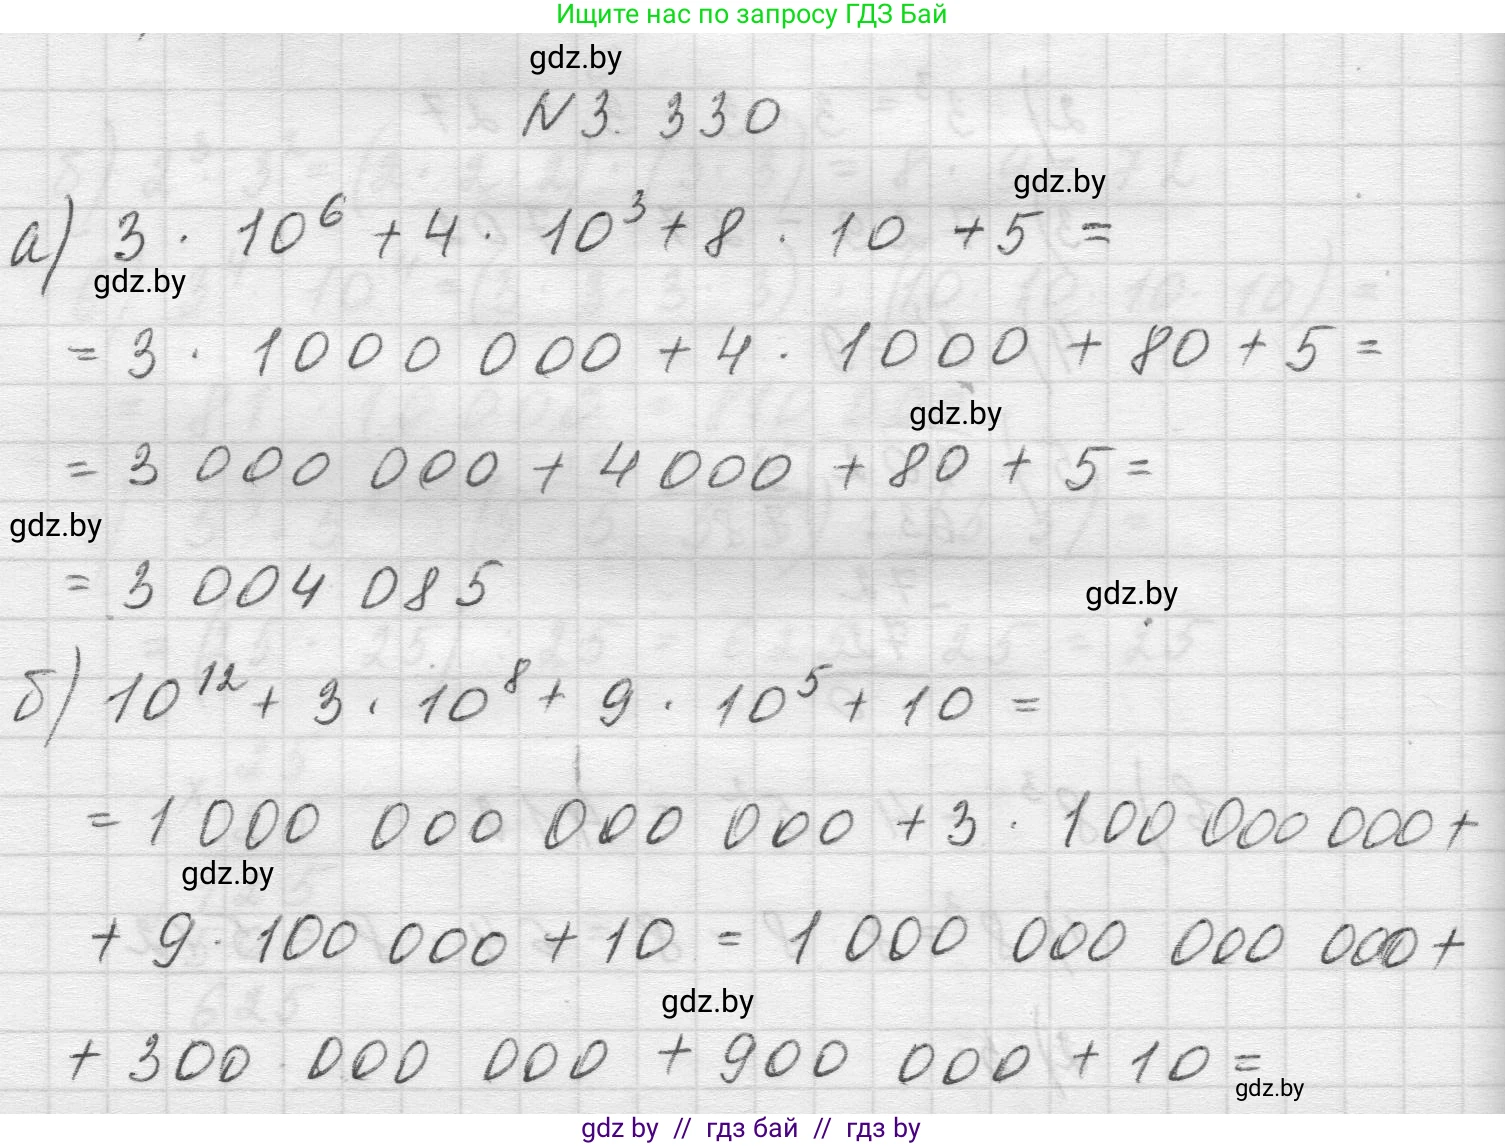 Ищите нас по запросу ГДЗ Бай
gdz.by
N3. 330
gdz.by
а) 3 · 10⁶ + 4 · 10³ + 8 · 10 + 5 =
gdz.by
= 3 · 1000 000 + 4 · 1000 + 80 + 5 =
gdz.by
= 3 000 000 + 4 000 + 80 + 5 =
gdz.by
= 3 004 085
gdz.by
б) 10¹² + 3 · 10⁸ + 9 · 10⁵ + 10 =
= 1 000 000 000 000 + 3 · 100 000 000 +
gdz.by
+ 9 · 100 000 + 10 = 1 000 000 000 000 +
gdz.by
+ 300 000 000 + 900 000 + 10 =
gdz.by
gdz by // гдз бай // гдз by